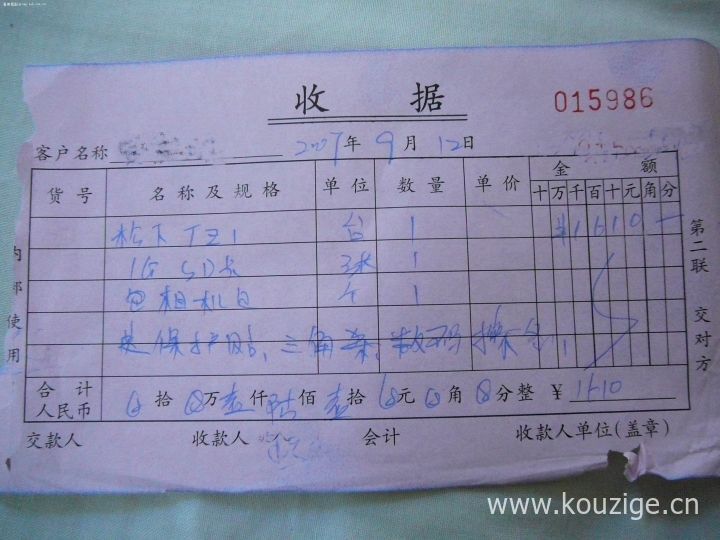 收 据
015986
客户名称 2007年9月12日
货号 名称及规格 单位 数量 单价 金额
十万千百十元角分
松下TZ1 台 1 ¥1610—
1G SD卡 1
包相机包 个 1
送保护贴,三角架,
合计人民币 拾 万壹仟陆佰壹拾 元 角 分整 ¥1610
交款人 收款人 会计 收款人单位(盖章)
第二联 交对方
内部使用
www.kouzige.cn